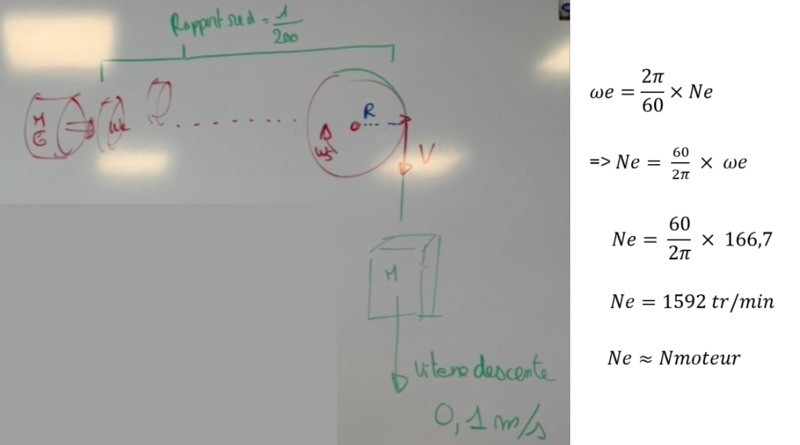 Rapport red = 1/200
M
G
ωe
ωs
R
V
M
Vitesse descente
0,1 m/s
ωe = 2π/60 × Ne
=> Ne = 60/2π × ωe
Ne = 60/2π × 166,7
Ne = 1592 tr/min
Ne ≈ Nmoteur